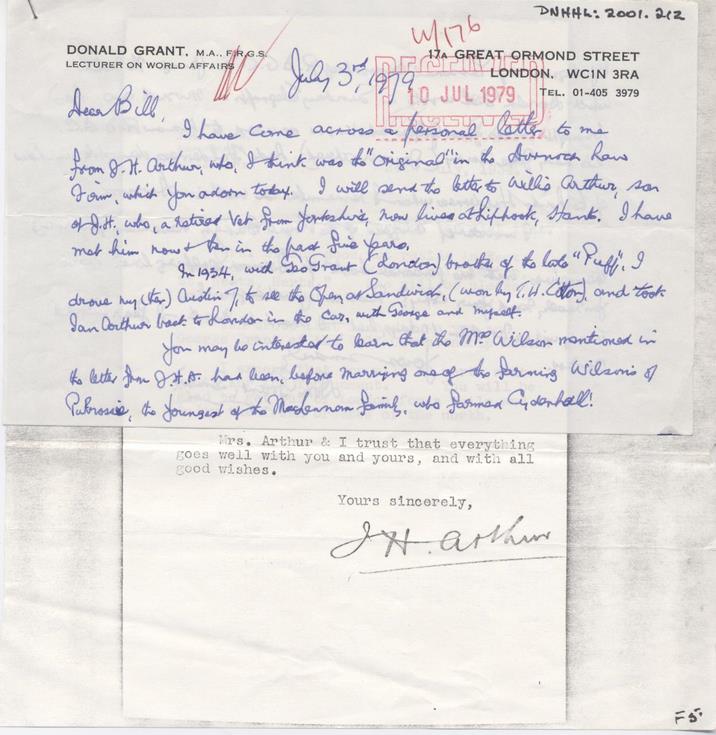 DNHHL: 2001. 212
W/176
DONALD GRANT, M.A., F.R.G.S.
LECTURER ON WORLD AFFAIRS
17A GREAT ORMOND STREET
LONDON, WC1N 3RA
TEL. 01-405 3979
July 3rd, 1979
RECEIVED
10 JUL 1979
RECEIVED
Dear Bill,
I have come across a personal letter to me
from J.H. Arthur, who, I think was the "Original" in the Dornoch Law
Firm, which you adorn today. I will send the letter to Willis Arthur, son
of J.H., who, a retired Vet from Yorkshire, now lives at Liphook, Hants. I have
met him now & then in the past five years.
In 1934, with Geo Grant (London) brother of the late "Puff", I
drove my (her) Austin 7, to see the Open at Sandwich, (won by T.H. Cotton), and took
Ian Arthur back to London in the Car, with George and myself.
You may be interested to learn that the Mrs Wilson mentioned in
the letter from J.H.A. had been, before marrying one of the farming Wilsons of
Pulrossie, the youngest of the Maclennan family, who farmed Cyderhall!
Mrs. Arthur & I trust that everything
goes well with you and yours, and with all
good wishes.
Yours sincerely,
J H. Arthur
F5.